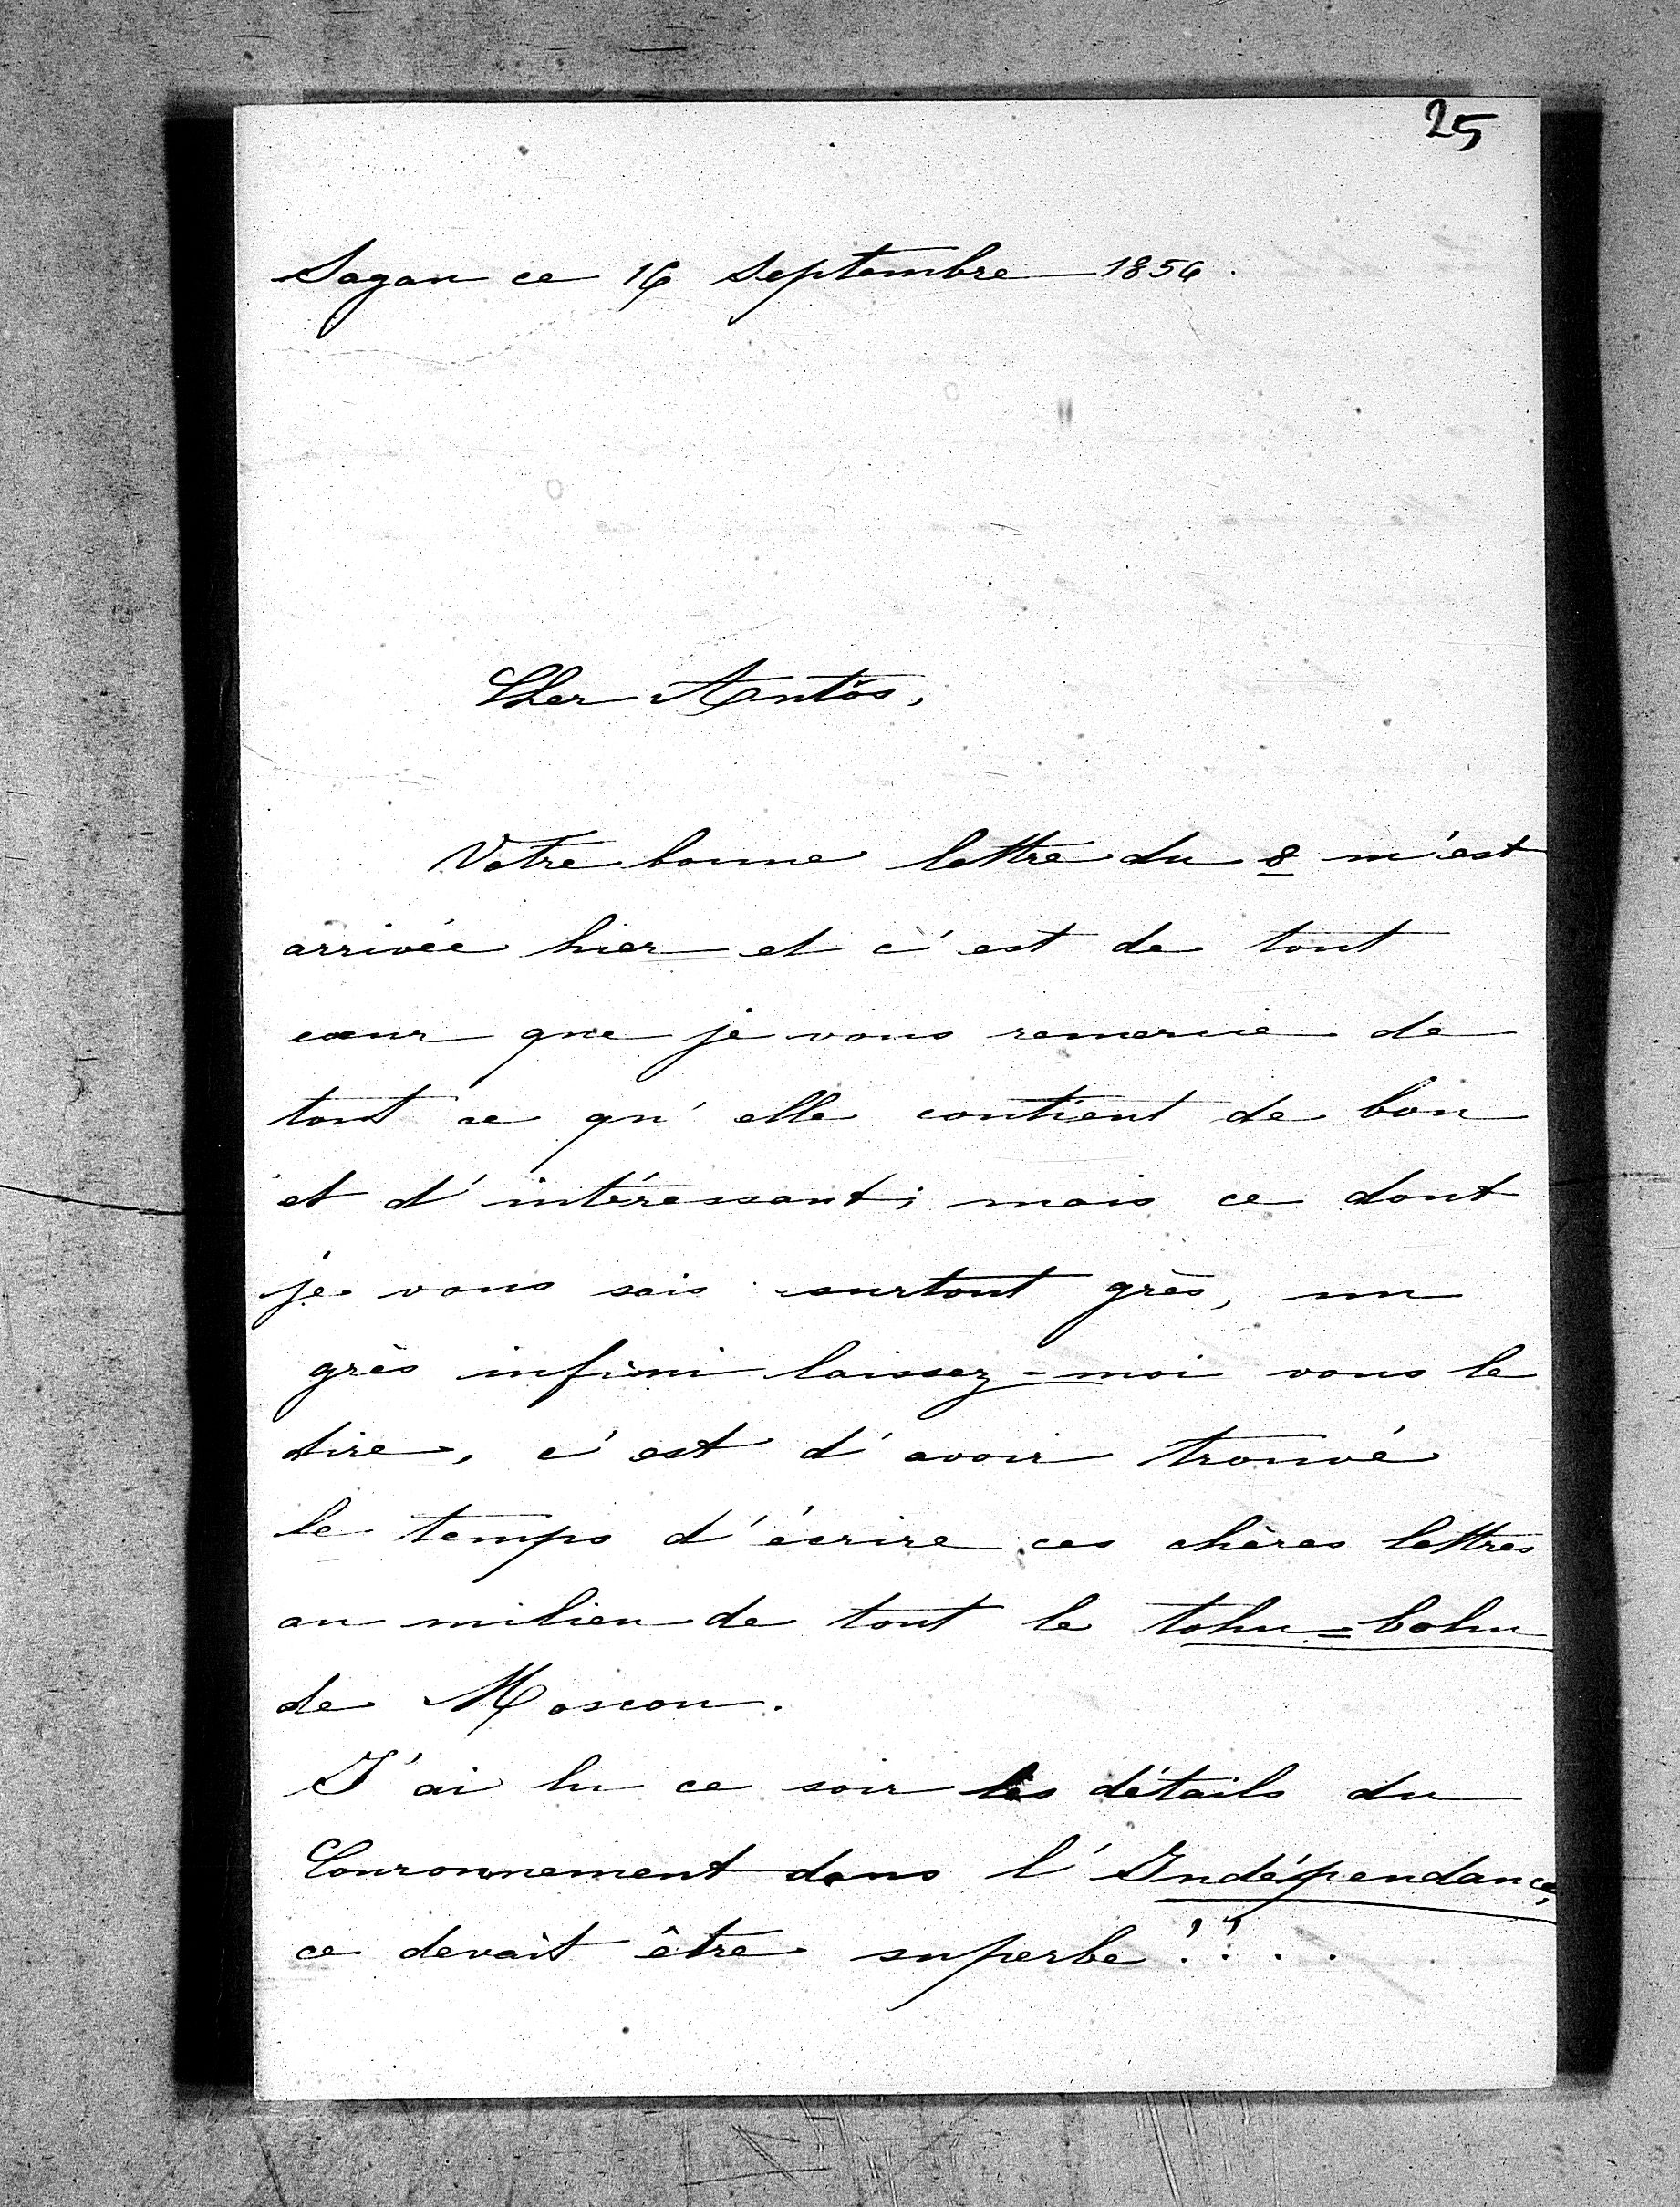 25
Sagan ce 16 Septembre 1856.
Cher Antôs,
Votre bonne lettre du 8 m'est
arrivée hier et c'est de tout
cœur que je vous remercie de
tout ce qu'elle contient de bon
et d'intéressant; mais ce dont
je vous sais surtout grès, un
grès infini laissez-moi vous le
dire, c'est d'avoir trouvé
le temps d'écrire ces chères lettres
au milieu de tout le tohu=bohu
de Moscou.
J'ai lu ce soir les détails du
Couronnement dans l'Indépendance,
ce devait être superbe!!..